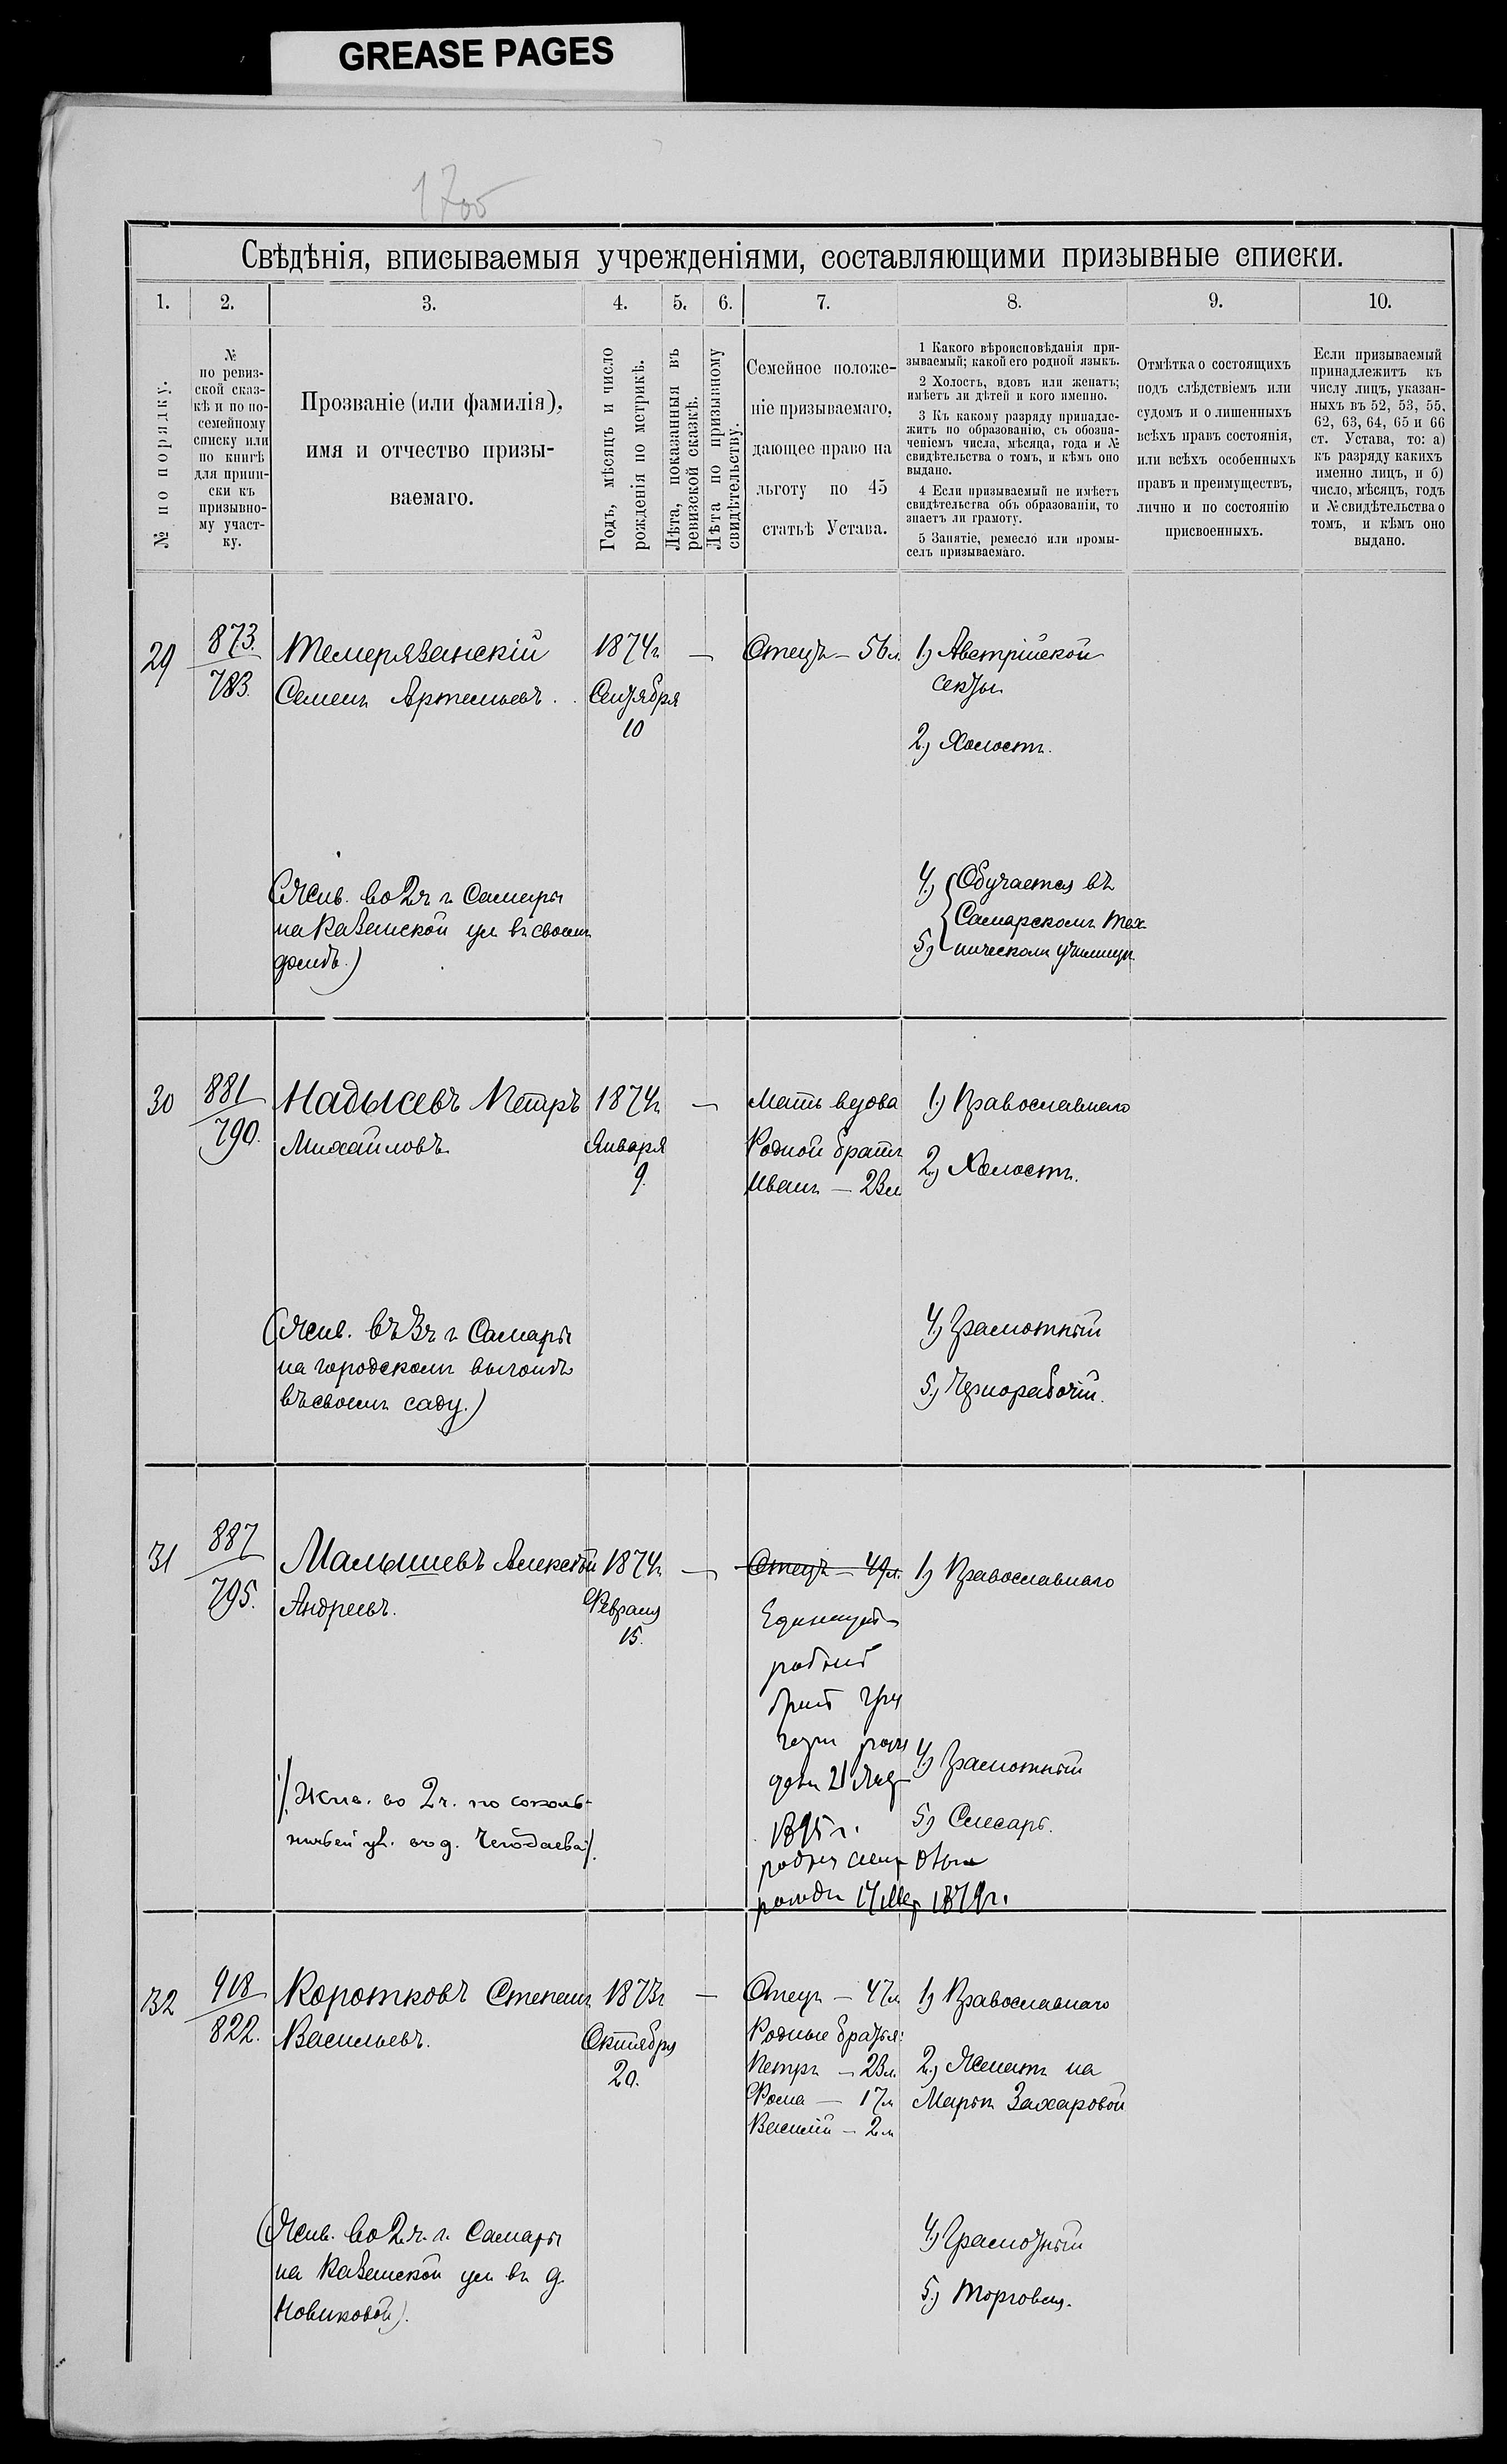 GREASE PAGES
1700
Свѣдѣнія, вписываемыя учрежденіями, составляющими призывные списки.
1. 2. 3. 4. 5. 6. 7. 8. 9. 10.
№ по порядку.
№
по ревиз-
ской сказ-
кѣ и по по-
семейному
списку или
по книгѣ
для припи-
ски къ
призывно-
му участ-
ку.
Прозваніе (или фамилія),
имя и отчество призы-
ваемаго.
Годъ, мѣсяцъ и число
рожденія по метрикѣ.
Лѣта, показанныя въ
ревизской сказкѣ.
Лѣта по призывному
свидѣтельству.
Семейное положе-
ніе призываемаго,
дающее право на
льготу по 45
статьѣ Устава.
1 Какого вѣроисповѣданія при-
зываемый; какой его родной языкъ.
2 Холостъ, вдовъ или женатъ;
имѣетъ ли дѣтей и кого именно.
3 Къ какому разряду принадле-
житъ по образованію, съ обозна-
ченіемъ числа, мѣсяца, года и №
свидѣтельства о томъ, и кѣмъ оно
выдано.
4 Если призываемый не имѣетъ
свидѣтельства объ образованіи, то
знаетъ ли грамоту.
5 Занятіе, ремесло или промы-
селъ призываемаго.
Отмѣтка о состоящихъ
подъ слѣдствіемъ или
судомъ и о лишенныхъ
всѣхъ правъ состоянія,
или всѣхъ особенныхъ
правъ и преимуществъ,
лично и по состоянію
присвоенныхъ.
Если призываемый
принадлежитъ къ
числу лицъ, указан-
ныхъ въ 52, 53, 55,
62, 63, 64, 65 и 66
ст. Устава, то: а)
къ разряду какихъ
именно лицъ, и б)
число, мѣсяцъ, годъ
и № свидѣтельства о
томъ, и кѣмъ оно
выдано.
29
873.
783.
Темерязанскій
Семенъ Артемьевъ.
1874г.
Сентября
10
—
Отецъ — 56л.
1) Австрійской
секты
2) Холостъ.
(Жив. во 2ч г. Самары
на Казанской ул въ своемъ
домѣ.)
4) Обучается въ
Самарскомъ Тех-
5) ническом училищѣ.
30
881
790.
Надысевъ Петръ
Михайловъ
1874г
Января
9.
—
Мать вдова
Родной братъ
Иванъ — 23л
1) Православнаго
2) Холостъ.
(Жив. въ 3ч г. Самары
на городскомъ выгонѣ
въ своемъ саду.)
4) Грамотный
5) Чернорабочій.
31
887
795.
Малышевъ Алексѣй
Андреевъ.
1874г
Февраля
15.
—
Отецъ — 49л.
1) Православнаго
21
1895 г.
4) Грамотный
5) Слесарь.
/Жив. во 2ч. по соколь-
ничьей ул. въ д. Чегодаева/.
17 1879г.
32
918
822.
Коротковъ Степанъ
Васильевъ.
1873г
Октября
20.
—
Отецъ — 47л
Родные братья:
Петръ — 23л.
Фома — 17л
Василій — 2л
1) Православнаго
2) Женатъ на
Марьѣ Захаровой
(Жив. во 2ч. г. Самары
на Казанской ул въ д.
Новиковой).
4) Грамотный
5) Торговля.